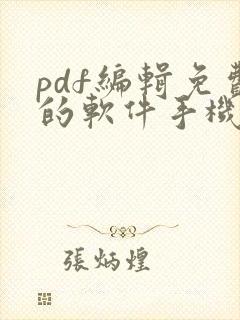 pdf編輯免費
的軟件手機
張炳煌